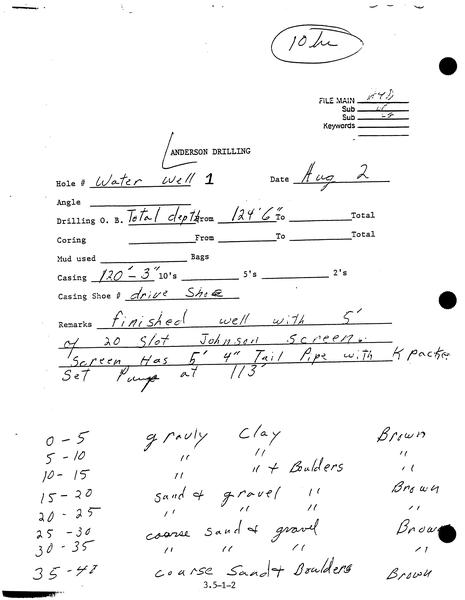 10 hr
FILE MAIN
Sub
Sub
Keywords
ANDERSON DRILLING
Hole # Water Well 1 Date Aug 2
Angle
Drilling O. B. Total depth From 124'6" To Total
Coring From To Total
Mud used Bags
Casing 120'-3" 10's 5's 2's
Casing Shoe # drive Shoe
Remarks finished well with 5'
of 20 Slot Johnson Screen.
Screen Has 5' 4" Tail Pipe with K packer
Set Pump at 113'
0-5 gravly Clay Brown
5-10 " " "
10-15 " " + Boulders "
15-20 sand + gravel " Brown
20-25 " " " "
25-30 coarse sand + gravel Brown
30-35 " " " "
35-48 coarse Sand + Boulders Brown
3.5-1-2